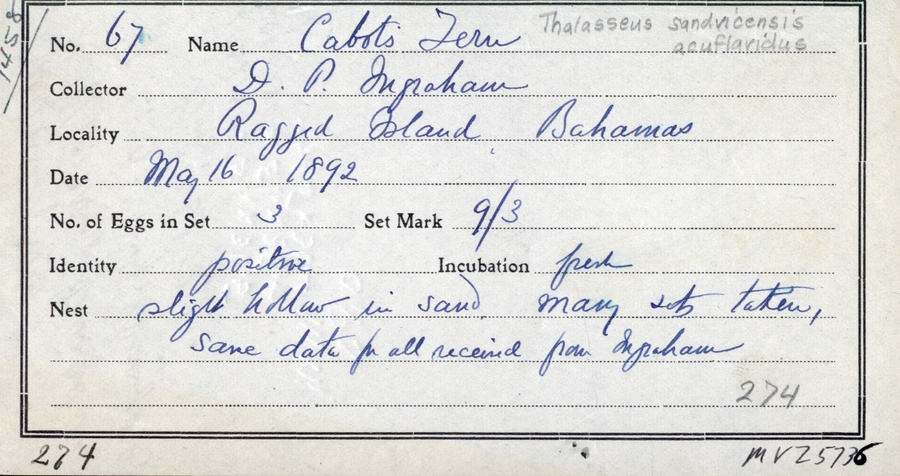 1458
No. 67 Name Cabots Tern Thalasseus sandvicensis
acuflavidus
Collector D. P. Ingraham
Locality Ragged Island, Bahamas
Date May 16 1892
No. of Eggs in Set 3 Set Mark 9/3
Identity positive Incubation fresh
Nest slight hollow in sand, many sets taken,
same data for all received from Ingraham
274
274 MVZ 5736